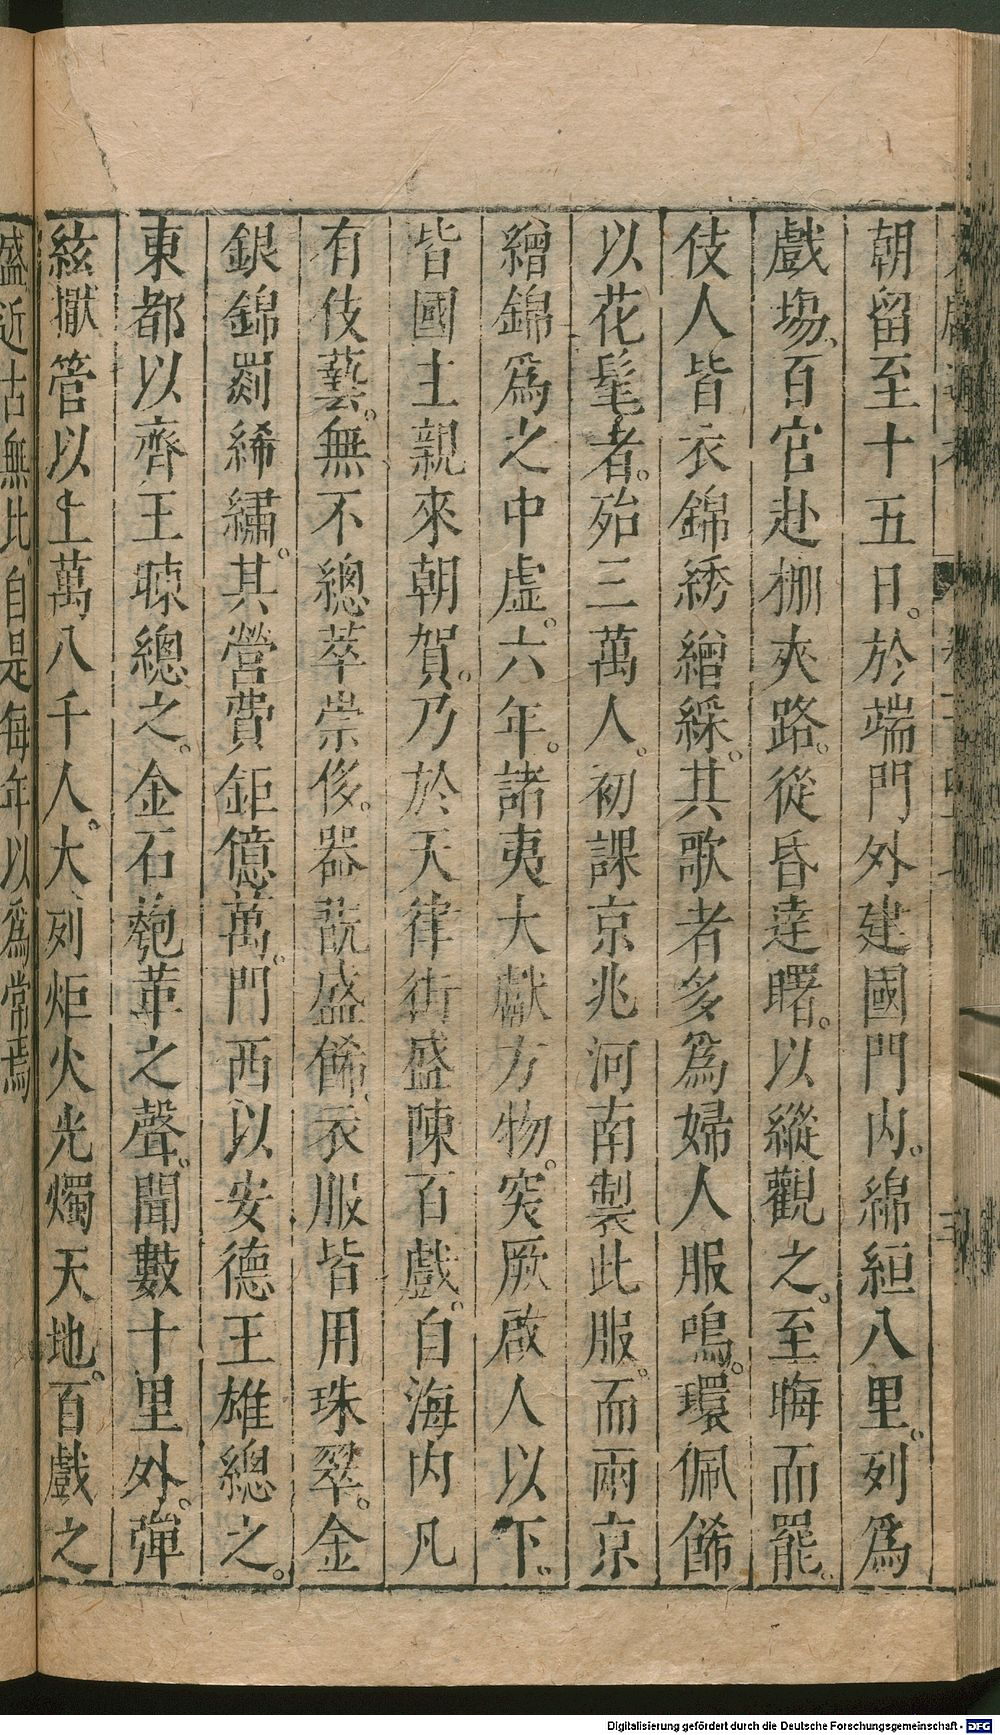 朝留至十五日。於端門外建國門内。綿絙八里。列爲
戲塲、百官赴棚夾路。從昏達曙。以縱觀之。至晦而罷。
伎人皆衣錦綉繒綵。其歌者多爲婦人服鳴。環佩餙
以花髦者。殆三萬人。初課京兆河南製此服。而兩京
繒錦爲之中虛。六年。諸夷大獻方物。突厥啟人以下。
皆國主親來朝賀。乃於天津街盛陳百戲。自海内凡
有伎藝。無不總萃崇侈。器翫盛餙、衣服皆用珠翠。金
銀錦罽絺繡。其營費鉅億萬。門西以安德王雄總之。
東都以齊王暕總之。金石匏革之聲。聞數十里外。彈
絃擫管以上萬八千人。大列炬火光燭天地。百戲之
盛近古無比。自是每年以爲常焉
Digitalisierung gefördert durch die Deutsche Forschungsgemeinschaft - DFG